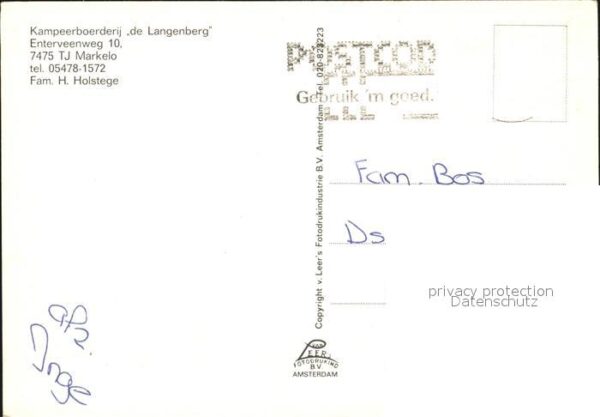 Kampeerboerderij „de Langenberg"
Enterveenweg 10,
7475 TJ Markelo
tel. 05478-1572
Fam. H. Holstege
POSTCOD
Gebruik 'm goed.
Copyright v. Leer's Fotodrukindustrie B.V. Amsterdam Tel. 020-823223
Fam. Bos
Ds
privacy protection
Datenschutz
afz.
Inge
VAN
LEER
FOTODRUKIND
BV
AMSTERDAM